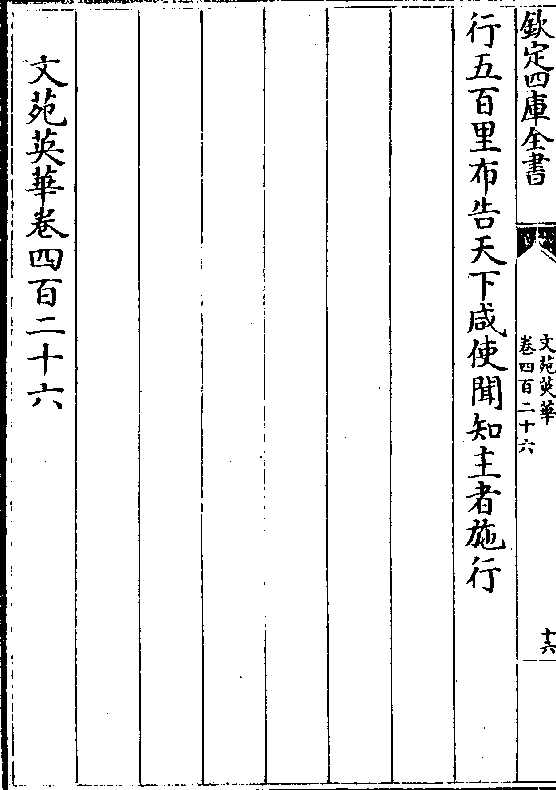 欽定四庫全書
文苑英華
卷四百二十六
十六
行五百里布告天下咸使聞知主者施行
文苑英華卷四百二十六